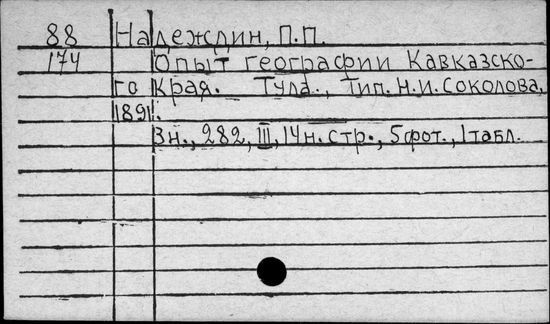 88 Надеждин, П.П.
174 Опыт географии Кавказско-
го края. Тула., Тип. Н.И. Соколова,
1891.
3н., 282, III, 14н. стр., 5 фот., 1 табл.